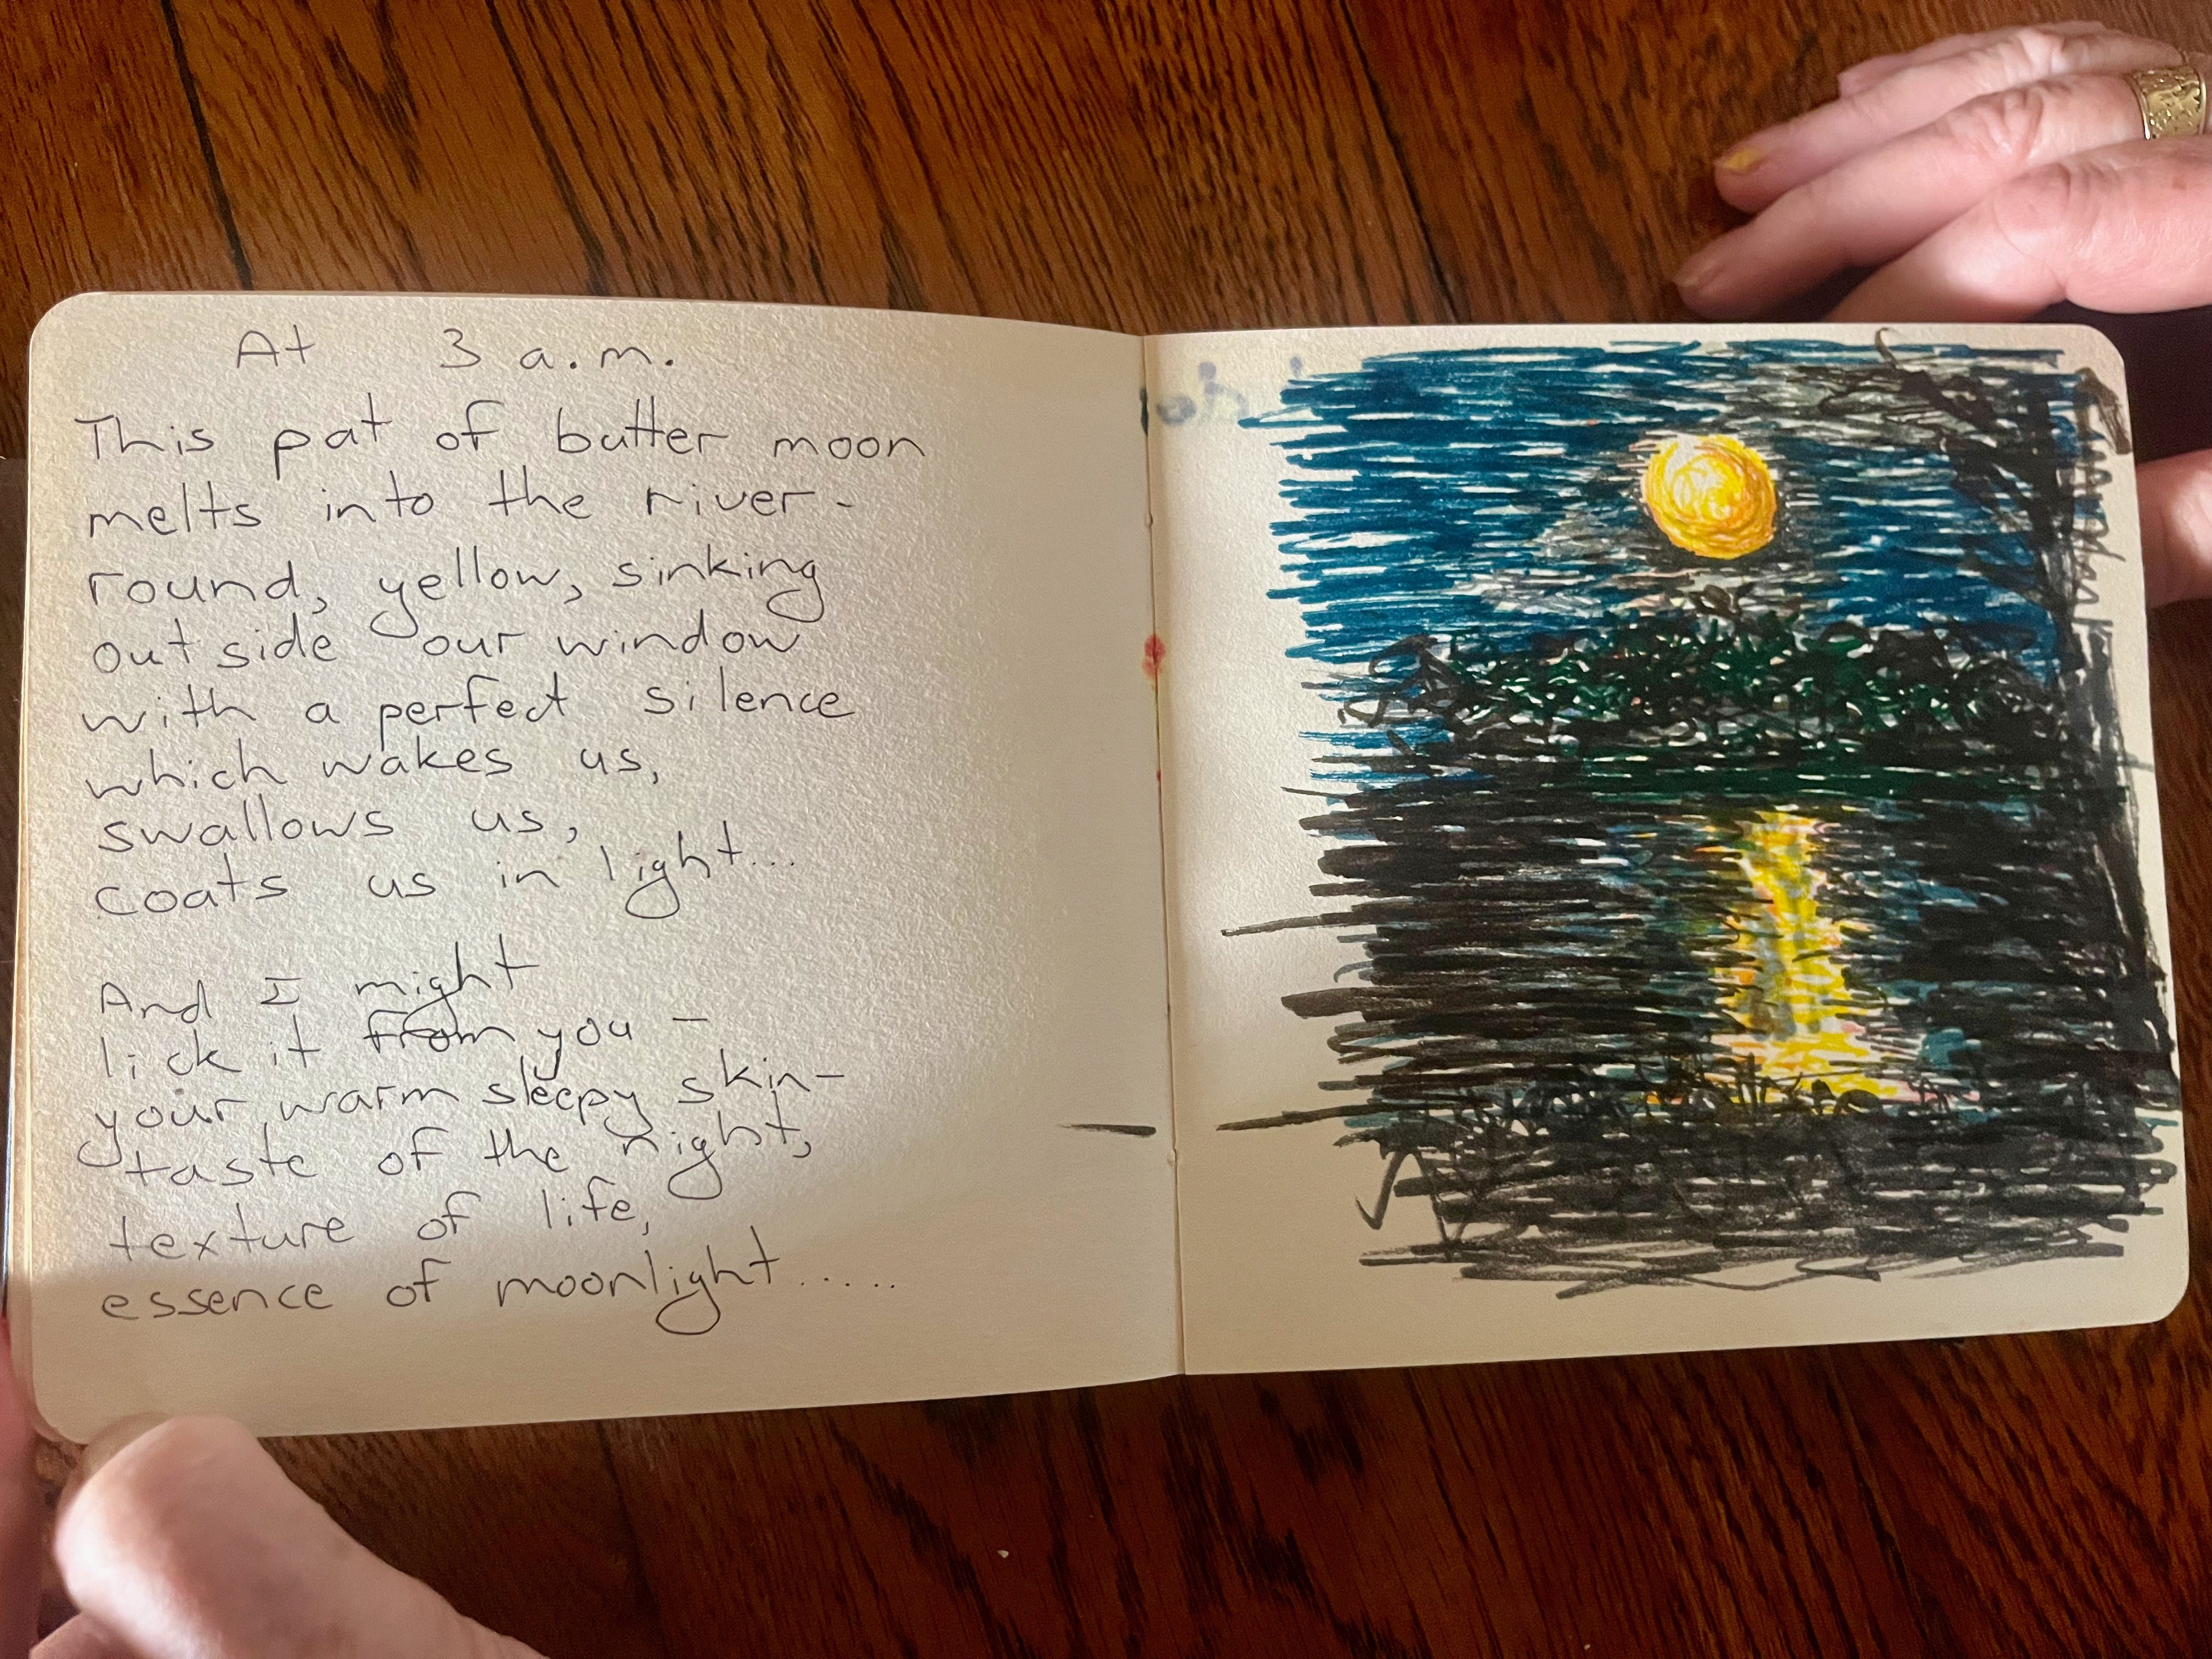 At 3 a.m.
This pat of butter moon
melts into the river -
round, yellow, sinking
outside our window
with a perfect silence
which wakes us,
swallows us,
coats us in light...
And I might
lick it from you -
your warm sleepy skin -
taste of the night,
texture of life,
essence of moonlight.....